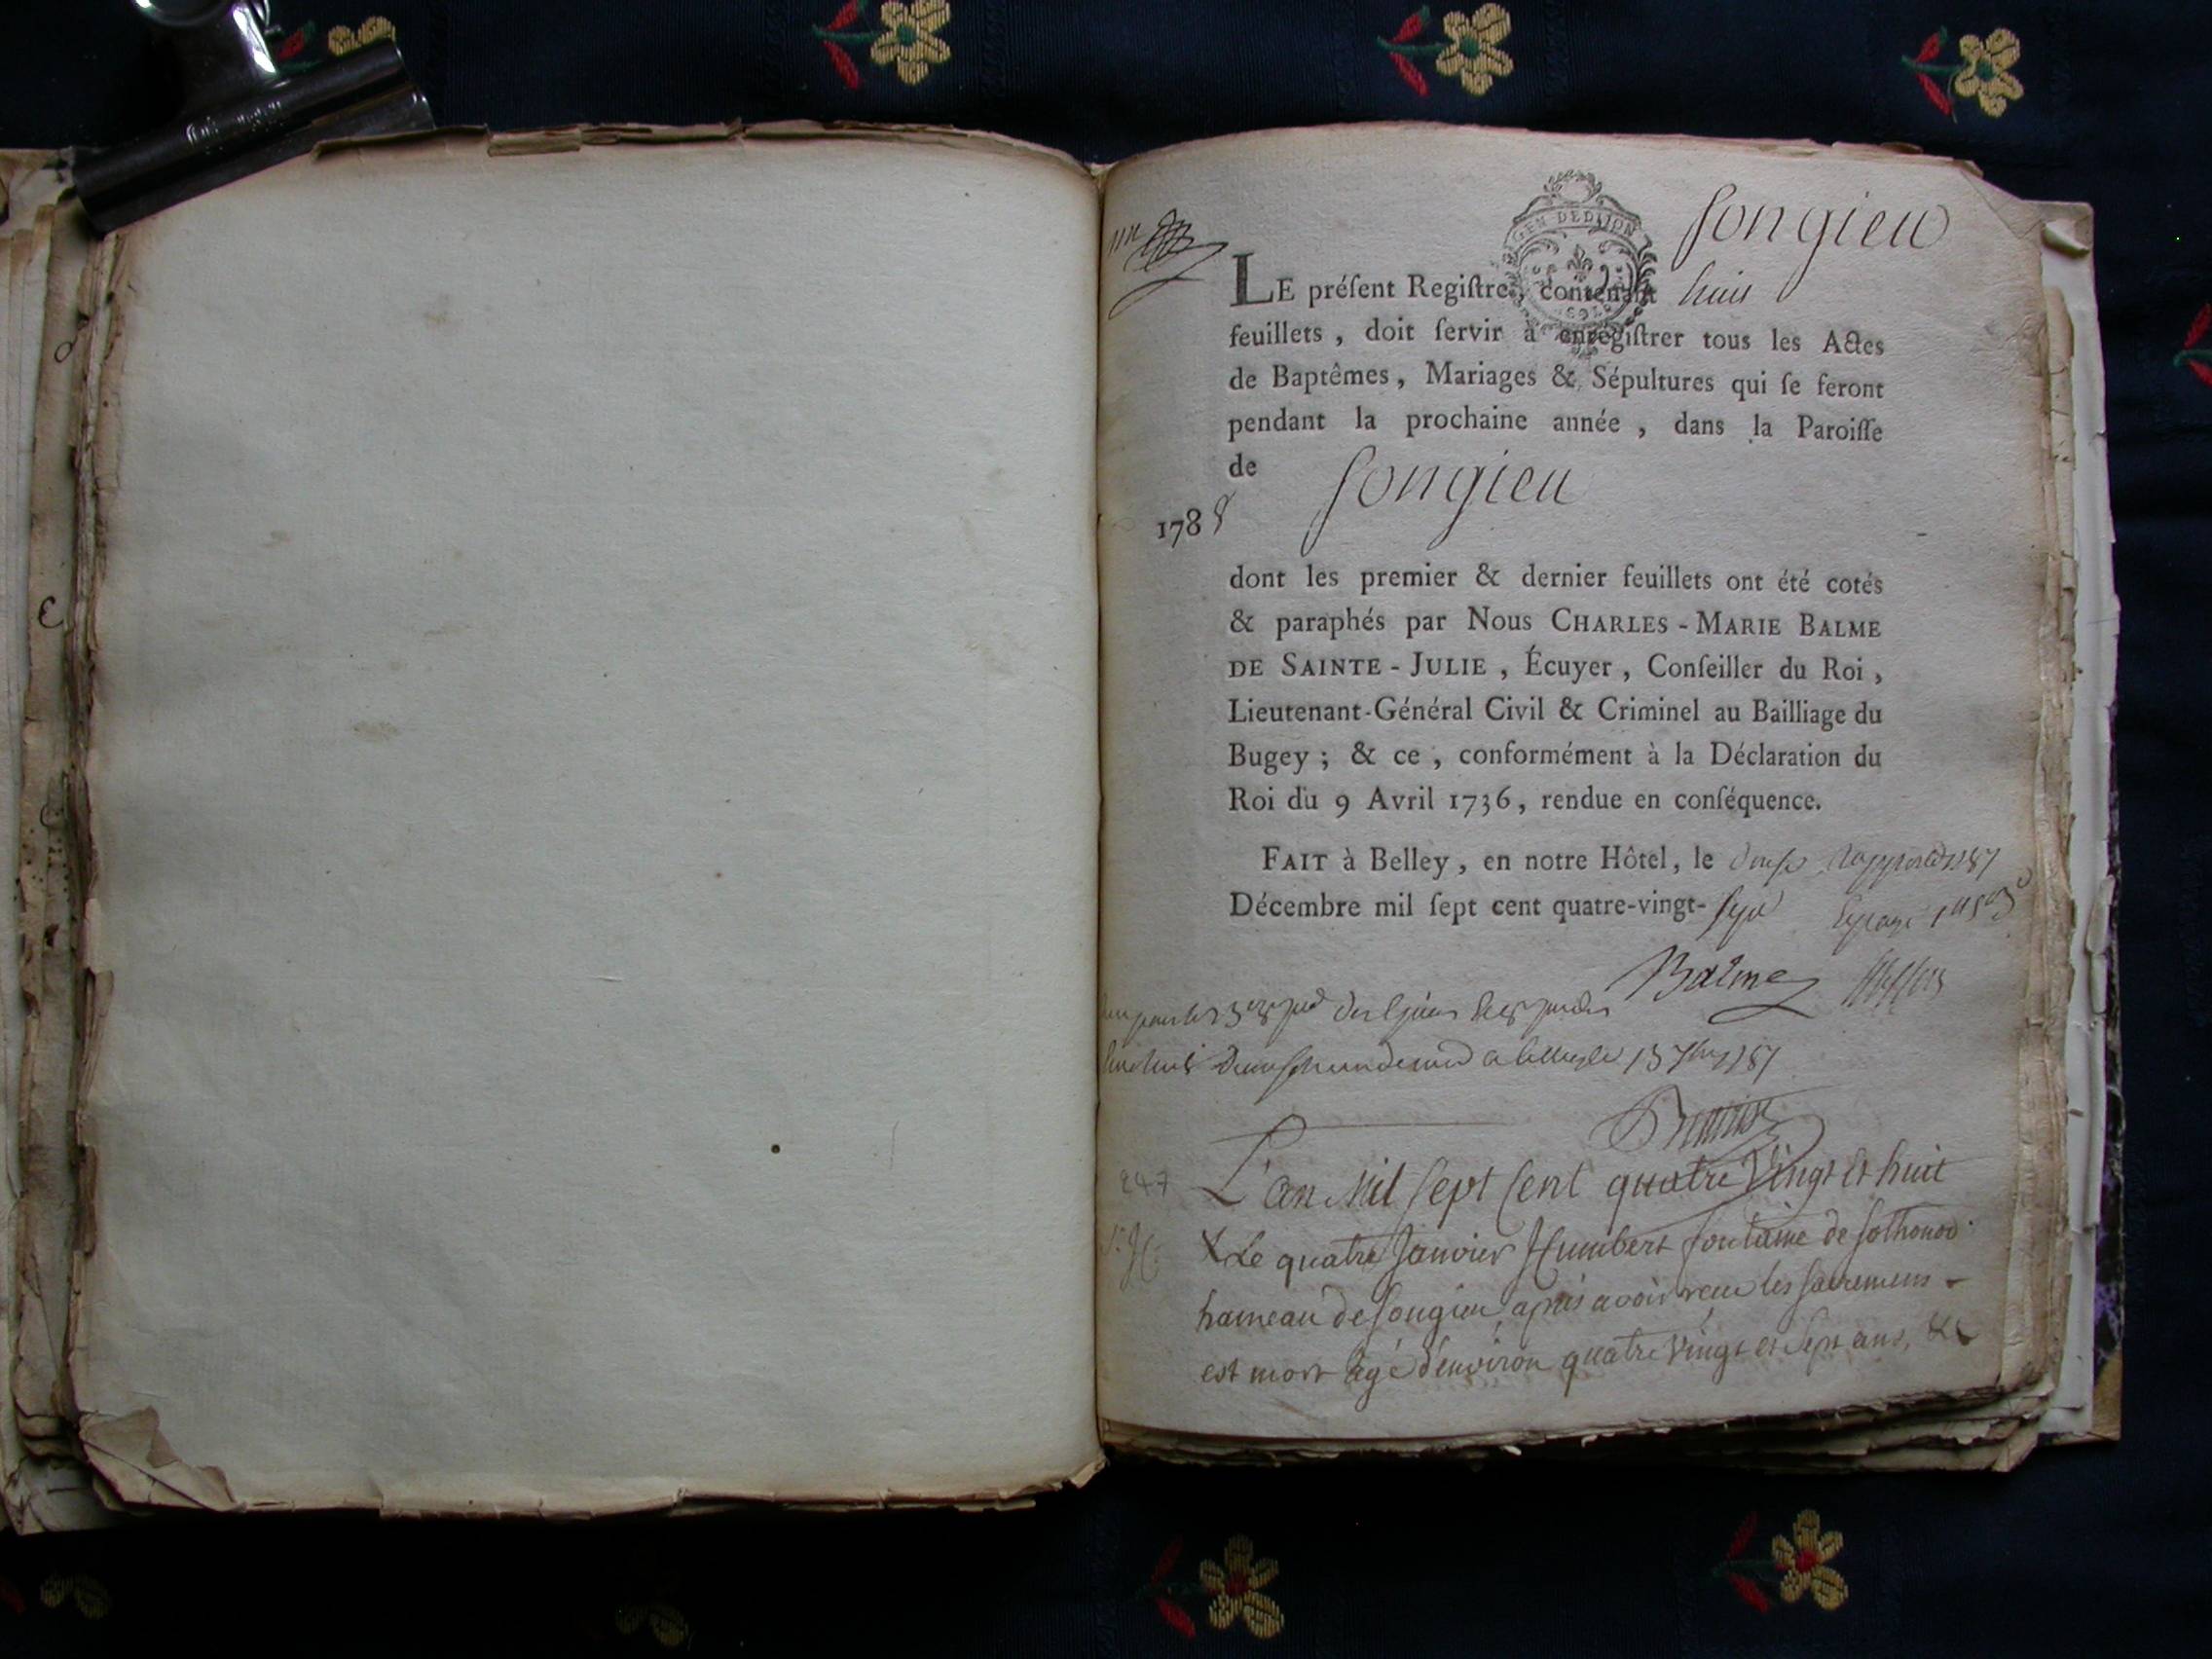 GEN DEDIJON
SOLS
Songieu
LE préſent Regiſtre, contenant huit
feuillets, doit ſervir à enregiſtrer tous les Actes
de Baptêmes, Mariages & Sépultures qui ſe feront
pendant la prochaine année, dans la Paroiſſe
de Songieu
1788
dont les premier & dernier feuillets ont été cotés
& paraphés par Nous CHARLES-MARIE BALME
DE SAINTE-JULIE, Écuyer, Conſeiller du Roi,
Lieutenant-Général Civil & Criminel au Bailliage du
Bugey; & ce, conformément à la Déclaration du
Roi du 9 Avril 1736, rendue en conſéquence.
FAIT à Belley, en notre Hôtel, le
Décembre mil ſept cent quatre-vingt-sept
Balme
247
L'an Mil Sept Cent quatre Vingt et huit
X Le quatre Janvier Humbert fontaine de Sothonod
S. H:
hameau de Songieu, après avoir reçu les sacremens
est mort âgé d'environ quatre vingt et sept ans, &